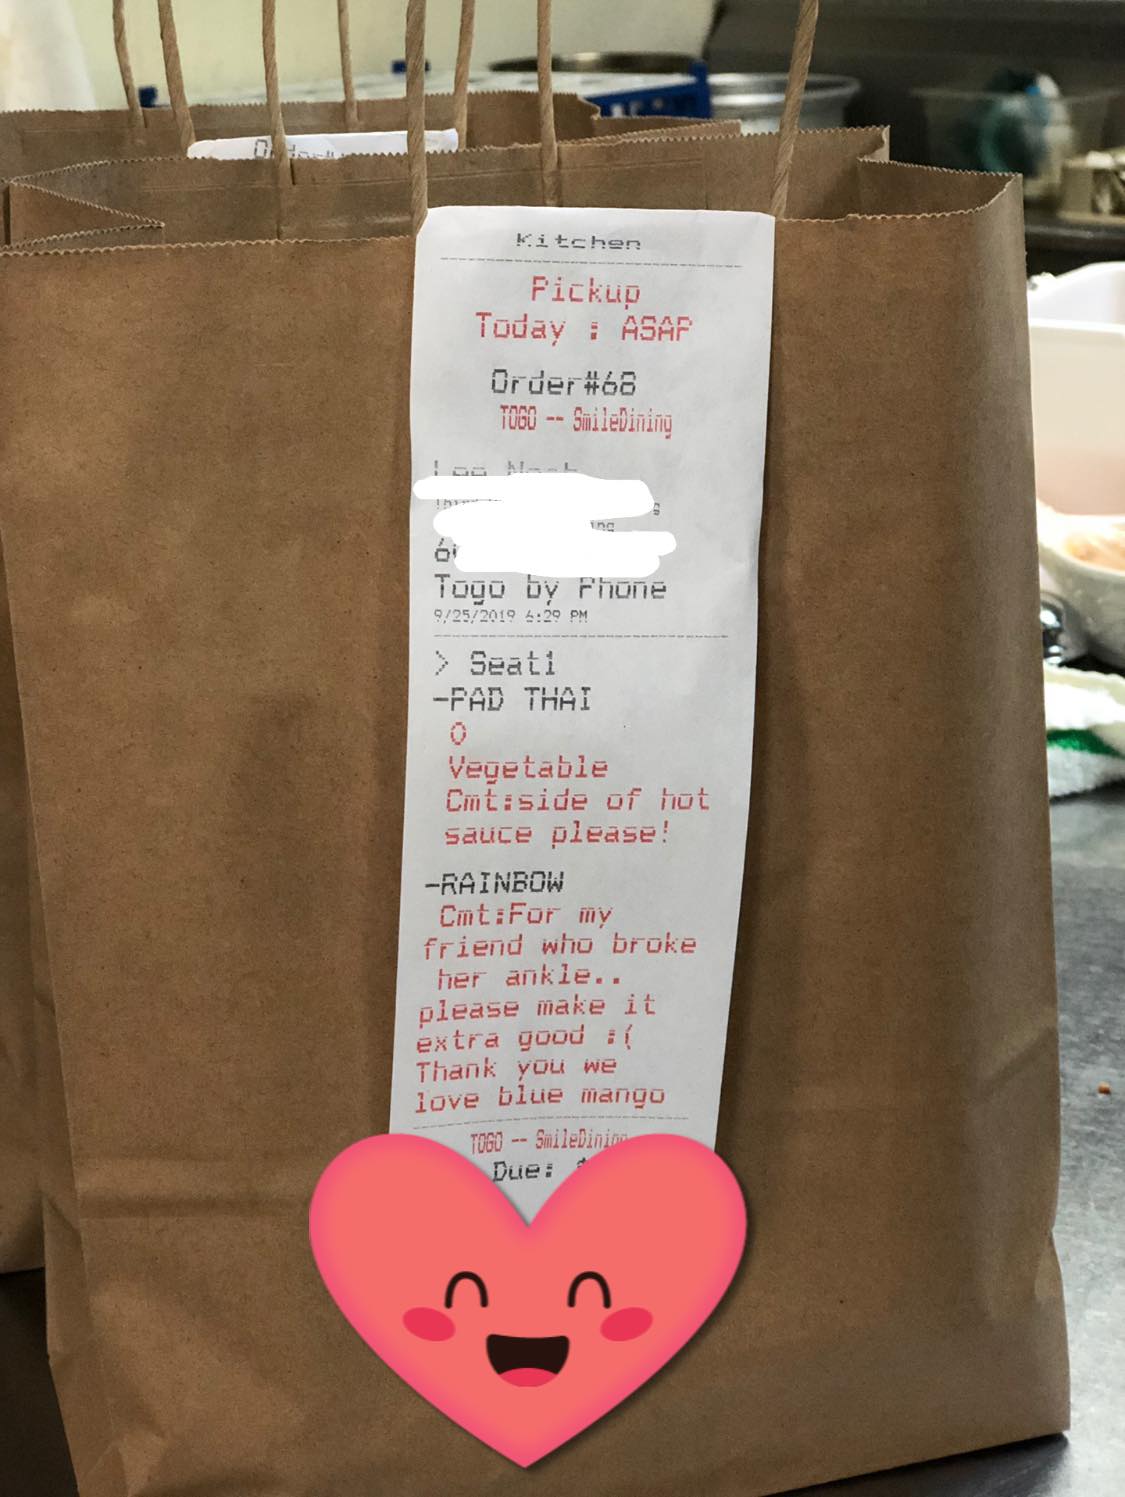 Kitchen
Pickup
Today : ASAP
Order#68
TOGO -- SmileDining
Togo by Phone
9/25/2019 6:29 PM
> Seat1
-PAD THAI
0
Vegetable
Cmt:side of hot
sauce please!
-RAINBOW
Cmt:For my
friend who broke
her ankle..
please make it
extra good :(
Thank you we
love blue mango
TOGO -- SmileDining
Due: